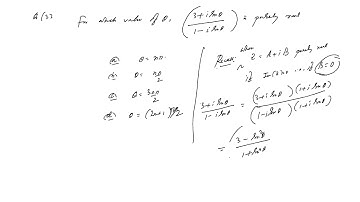 Q(3) For which value of θ, (3+i sinθ / 1−i sinθ) is purely real
(a) θ = nπ
(b) θ = nπ/2
(c) θ = 3nπ/2
(d) θ = (2n+1)π/2
Recall when
Z = A+iB purely real
if Im(z)=0 i.e. if B=0
3+i sinθ / 1−i sinθ = (3+i sinθ)(1+i sinθ) / (1−i sinθ)(1+i sinθ)
= (3−sin²θ / 1+sin²θ